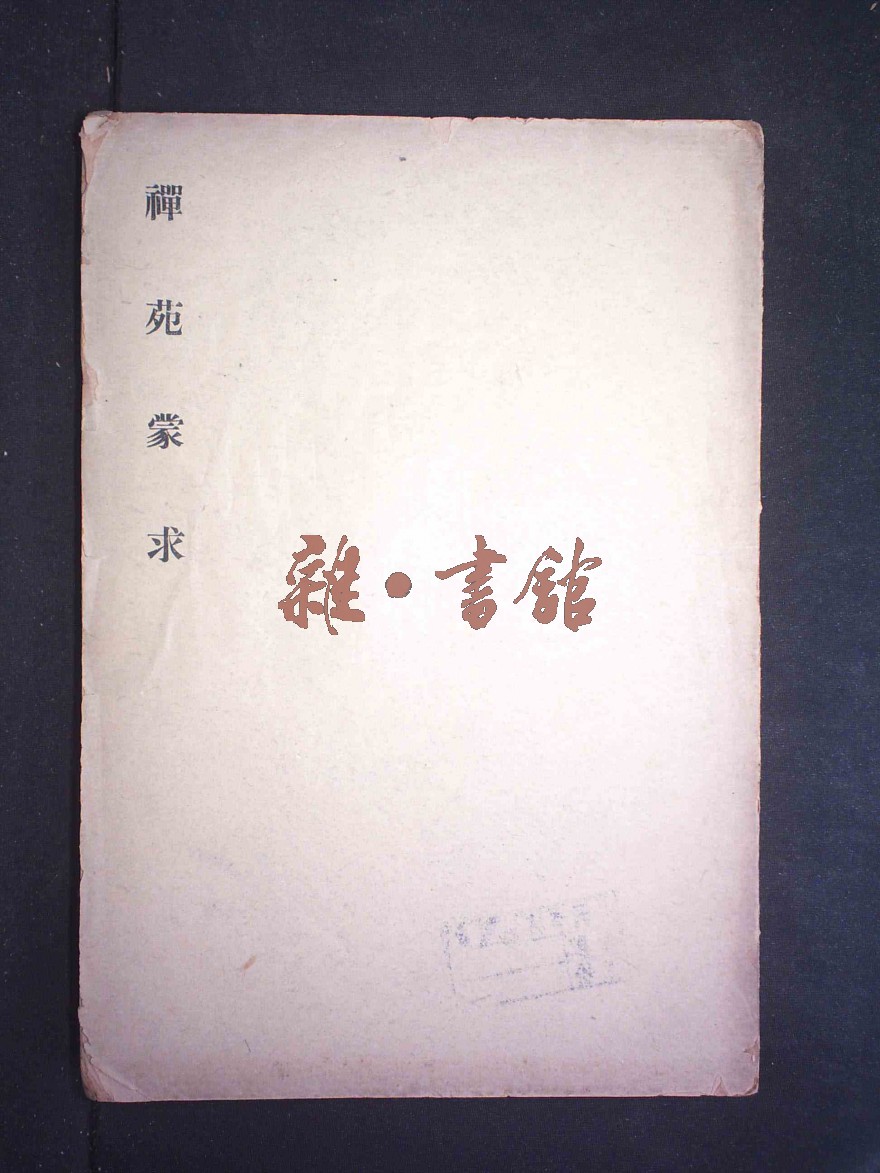 禪苑蒙求
雜·書館